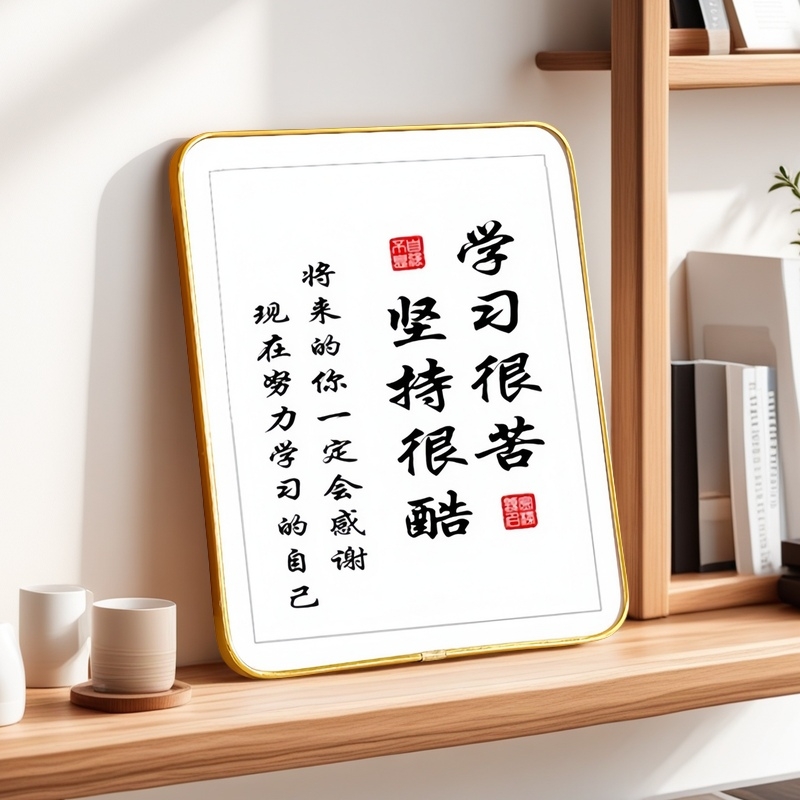 学习很苦
坚持很酷
将来的你一定会感谢
现在努力学习的自己
自强不息